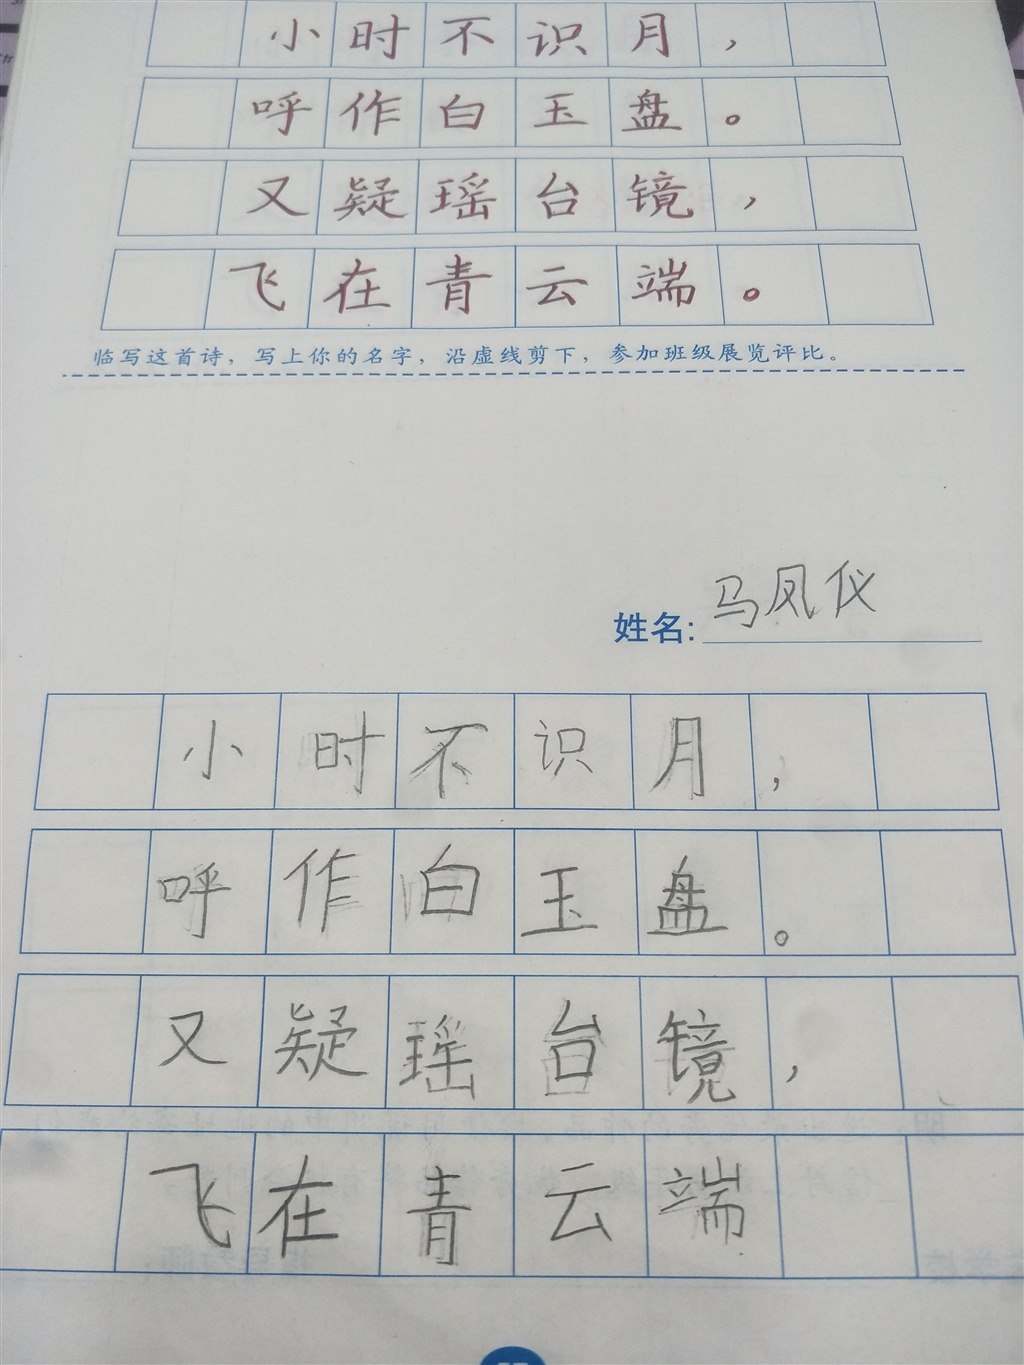 小时不识月，
呼作白玉盘。
又疑瑶台镜，
飞在青云端。
临写这首诗，写上你的名字，沿虚线剪下，参加班级展览评比。
姓名：马凤仪
小时不识月，
呼作白玉盘。
又疑瑶台镜，
飞在青云端